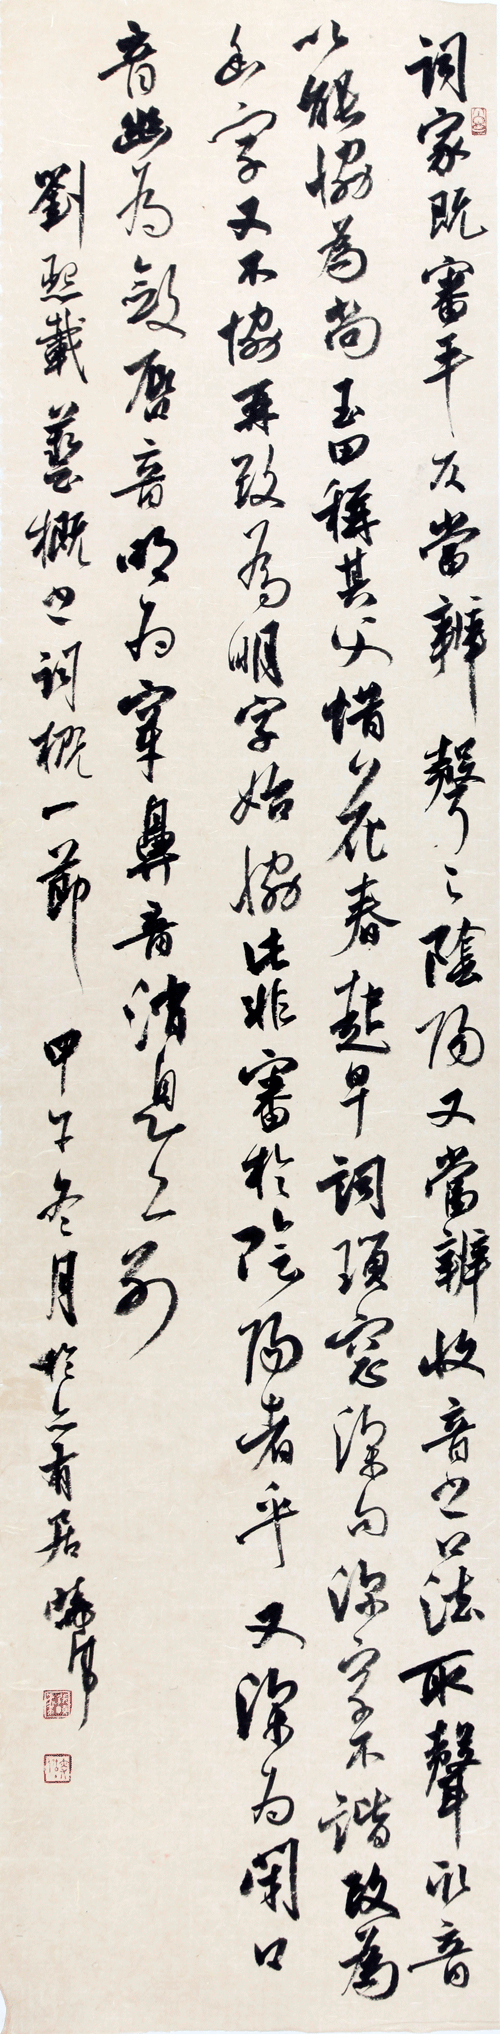 詞家既審平仄當辨聲之陰陽又當辨收音之口法取聲取音
以能協為尚玉田稱其父惜花春起早詞瑣窓深句深字不諧改為
幽字又不協再改為明字始協此非審於陰陽者乎又深為閉口
音幽為斂唇音明為穿鼻音消息亦別
劉熙載藝概之詞概一節 甲午冬月於亦有居